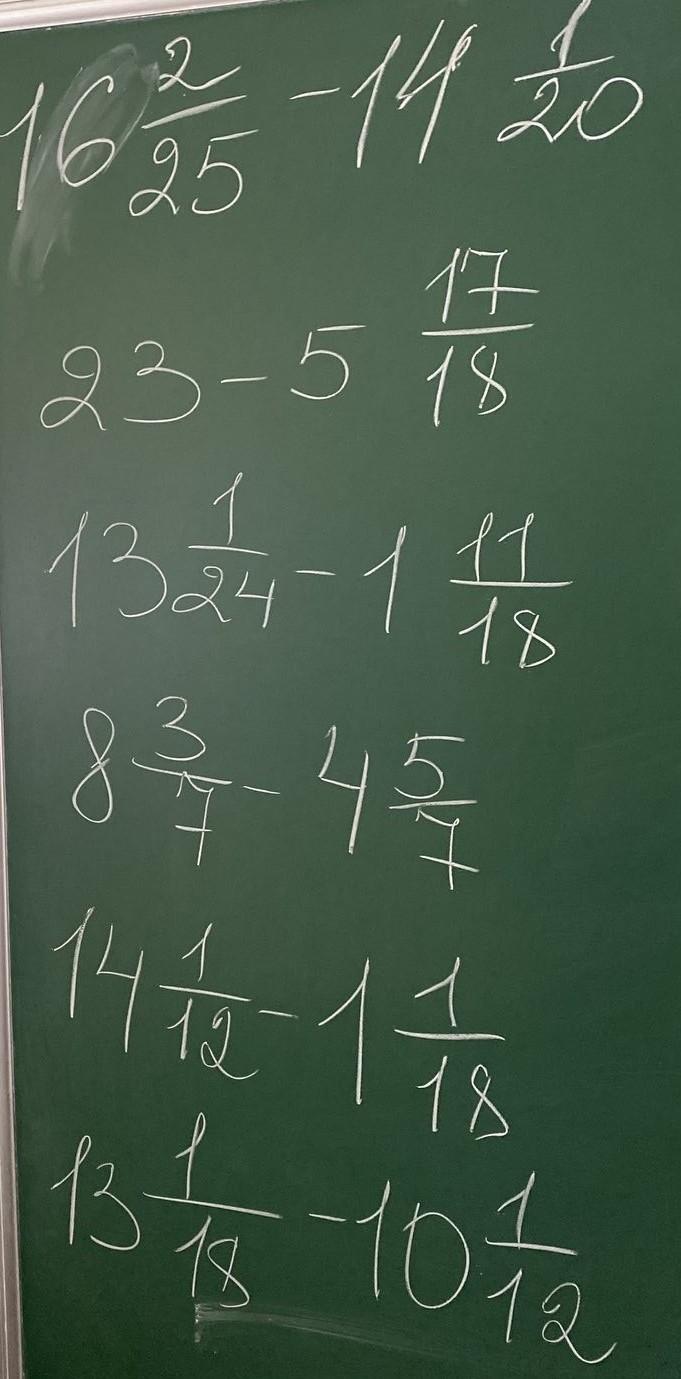 16 2/25 - 14 1/20
23 - 5 17/18
13 1/24 - 1 11/18
8 3/7 - 4 5/7
14 1/12 - 1 1/18
13 1/18 - 10 1/12